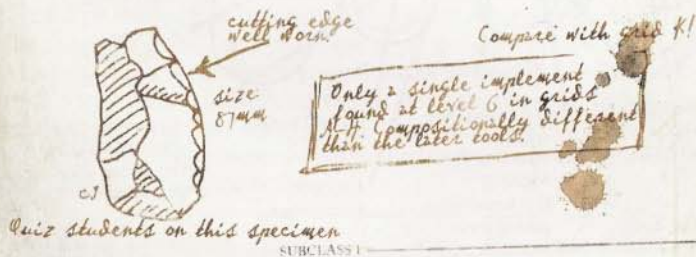 cutting edge
well worn.
Compare with grid K!
size
87mm
Only a single implement
found at level 6 in grids
Compositionally different
than the later tools.
CJ
Quiz students on this specimen
SUBCLASS I